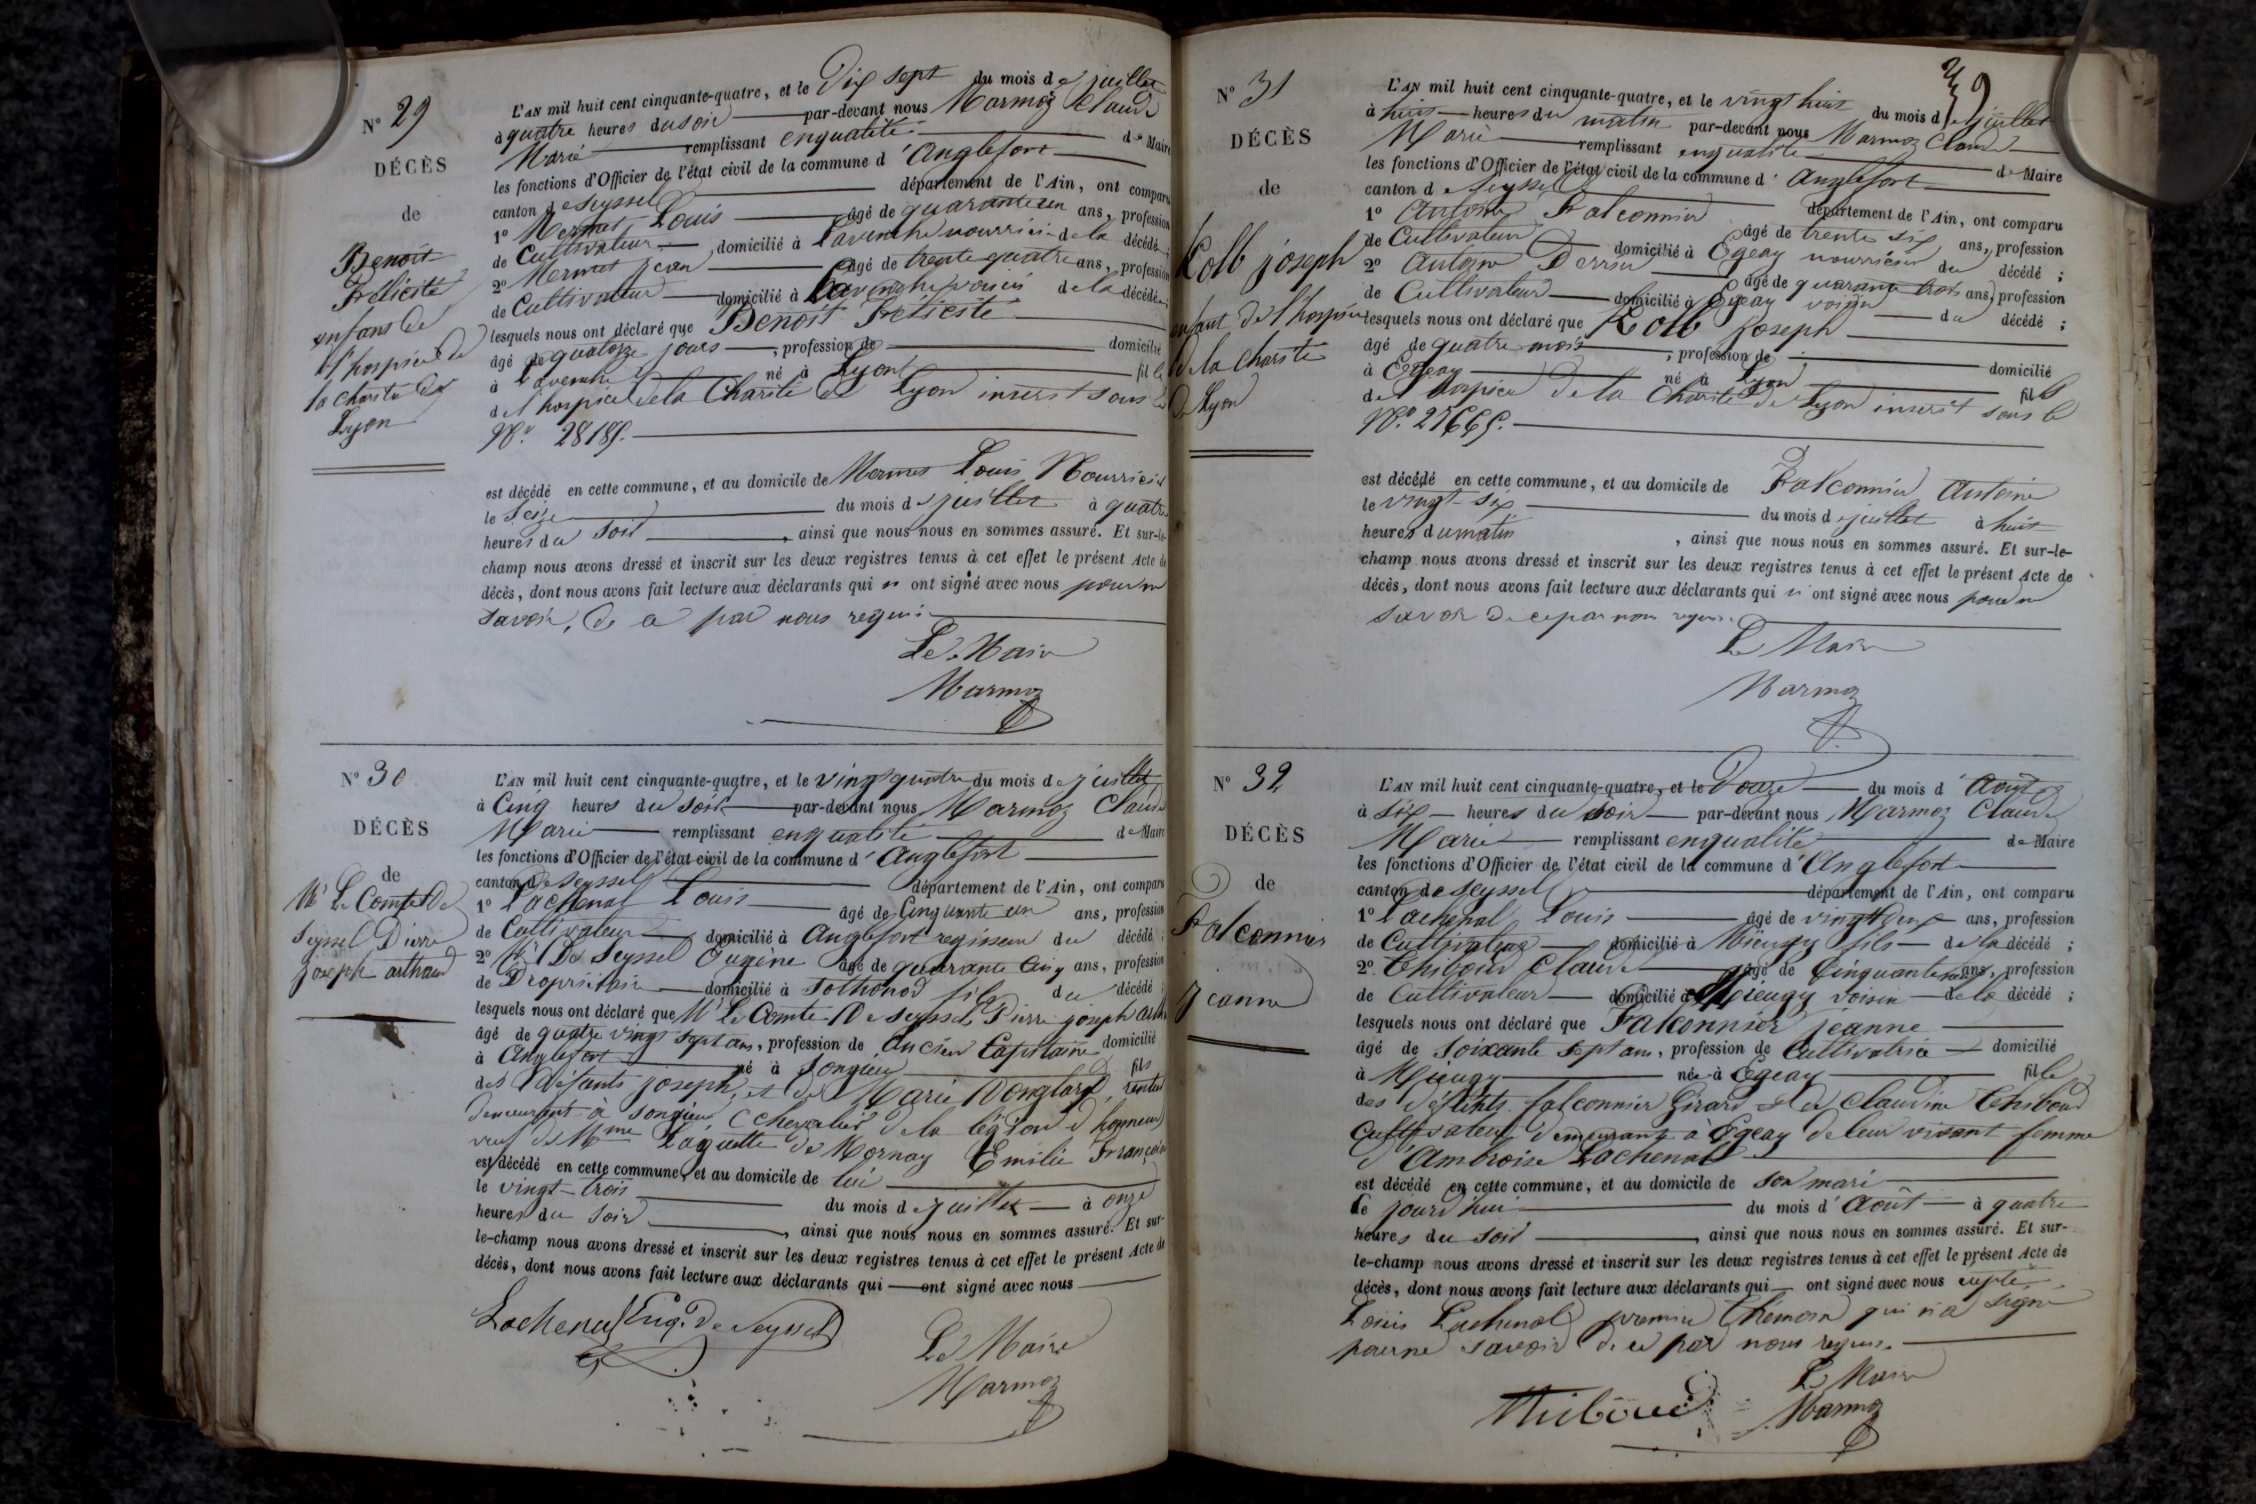 N° 29
DÉCÈS
de
Benoit
Félicité
enfant de
l'hospice de
la charité de
Lyon
L'AN mil huit cent cinquante-quatre, et le Dix sept du mois de juillet
à quatre heures du soir par-devant nous Marmoz Claude
Marie remplissant en qualité de Maire
les fonctions d'Officier de l'état civil de la commune d'Anglefort
canton de Seyssel département de l'Ain, ont comparu
1° Mermet Louis âgé de quarante un ans, profession
de Cultivateur domicilié à Lavenche nourricier de la décédée ;
2° Mermet Jean âgé de trente quatre ans, profession
de Cultivateur domicilié à Lavenche voisin de la décédée ;
lesquels nous ont déclaré que Benoit Félicité
âgé de quatorze jours, profession de domicilié
à Lavenche né à Lyon fille
de l'hospice de la Charité de Lyon inscrit sous le
N°. 2818
est décédé en cette commune, et au domicile de Mermet Louis Nourricier
le Seize du mois de juillet à quatre
heures du soir, ainsi que nous nous en sommes assuré. Et sur-le-
champ nous avons dressé et inscrit sur les deux registres tenus à cet effet le présent Acte de
décès, dont nous avons fait lecture aux déclarants qui n'ont signé avec nous pour ne
savoir, de ce par nous requis
Le Maire
Marmoz
N° 30
DÉCÈS
de
Mr Le Comte De
Seyssel Pierre
joseph arthaud
L'AN mil huit cent cinquante-quatre, et le vingt quatre du mois de juillet
à Cinq heures du soir par-devant nous Marmoz Claude
Marie remplissant en qualité de Maire
les fonctions d'Officier de l'état civil de la commune d'Anglefort
canton de Seyssel département de l'Ain, ont comparu
1° Lachenal Louis âgé de Cinquante un ans, profession
de Cultivateur domicilié à Anglefort regisseur du décédé ;
2° Mr De Seyssel Eugène âgé de quarante Cinq ans, profession
de Propriétaire domicilié à Sothonod fils du décédé ;
lesquels nous ont déclaré que Mr Le Comte De Seyssel Pierre joseph arth
âgé de quatre vingt sept ans, profession de Ancien Capitaine domicilié
à Anglefort né à Songieu fils
des défunts joseph, et de Marie Donglard, rentier
demeurant à Songieu Chevalier de la légion d'honneur
veuf de Mme Laguette de Mornay Emilie Françoise
est décédé en cette commune, et au domicile de lui
le vingt-trois du mois de juillet à onze
heures du soir, ainsi que nous nous en sommes assuré. Et sur-
le-champ nous avons dressé et inscrit sur les deux registres tenus à cet effet le présent Acte de
décès, dont nous avons fait lecture aux déclarants qui ont signé avec nous
Lachenal Eug. de Seyssel
Le Maire
Marmoz
39
N° 31
DÉCÈS
de
Kolb joseph
enfant de l'hospice
de la charité
De Lyon
L'AN mil huit cent cinquante-quatre, et le vingt huit du mois de juillet
à huit heures du matin par-devant nous Marmoz Claude
Marie remplissant en qualité de Maire
les fonctions d'Officier de l'état civil de la commune d'Anglefort
canton de Seyssel département de l'Ain, ont comparu
1° Antoine Falconnier âgé de trente six ans, profession
de Cultivateur domicilié à Egeay nourricier du décédé ;
2° Antoine Perrin âgé de quarante trois ans, profession
de Cultivateur domicilié à Egeay voisin du décédé ;
lesquels nous ont déclaré que Kolb Joseph
âgé de quatre mois, profession de domicilié
à Egeay né à Lyon fils
de l'hospice de la Charité de Lyon inscrit sous le
N°.
est décédé en cette commune, et au domicile de Falconnier Antoine
le vingt-six du mois de juillet à huit
heures du matin, ainsi que nous nous en sommes assuré. Et sur-le-
champ nous avons dressé et inscrit sur les deux registres tenus à cet effet le présent Acte de
décès, dont nous avons fait lecture aux déclarants qui n'ont signé avec nous pour ne
savoir de ce par nous requis
Le Maire
Marmoz
N° 32
DÉCÈS
de
Falconnier
Jeanne
L'AN mil huit cent cinquante-quatre, et le Douze du mois d'Août
à six heures du soir par-devant nous Marmoz Claude
Marie remplissant en qualité de Maire
les fonctions d'Officier de l'état civil de la commune d'Anglefort
canton de Seyssel département de l'Ain, ont comparu
1° Lachenal Louis âgé de vingt deux ans, profession
de Cultivateur domicilié à Mieugy fils de la décédé ;
2° Thiboud Claude âgé de Cinquante ans, profession
de Cultivateur domicilié à Mieugy voisin de la décédé ;
lesquels nous ont déclaré que Falconnier jeanne
âgé de Soixante Sept ans, profession de Cultivatrice domicilié
à Mieugy née à Egeay fille
des défunts falconnier Girard et de Claudine Thiboud
Cultivateur demeurant à Egeay de leur vivant femme
d'Ambroise Lachenal
est décédé en cette commune, et au domicile de son mari
le jourd'hui du mois d'Août à quatre
heures du soir, ainsi que nous nous en sommes assuré. Et sur-
le-champ nous avons dressé et inscrit sur les deux registres tenus à cet effet le présent Acte de
décès, dont nous avons fait lecture aux déclarants qui ont signé avec nous excepté
Louis Lachenal premier thémoin qui n'a signé
pour ne savoir de ce par nous requis.
Le Maire
Thiboud Marmoz